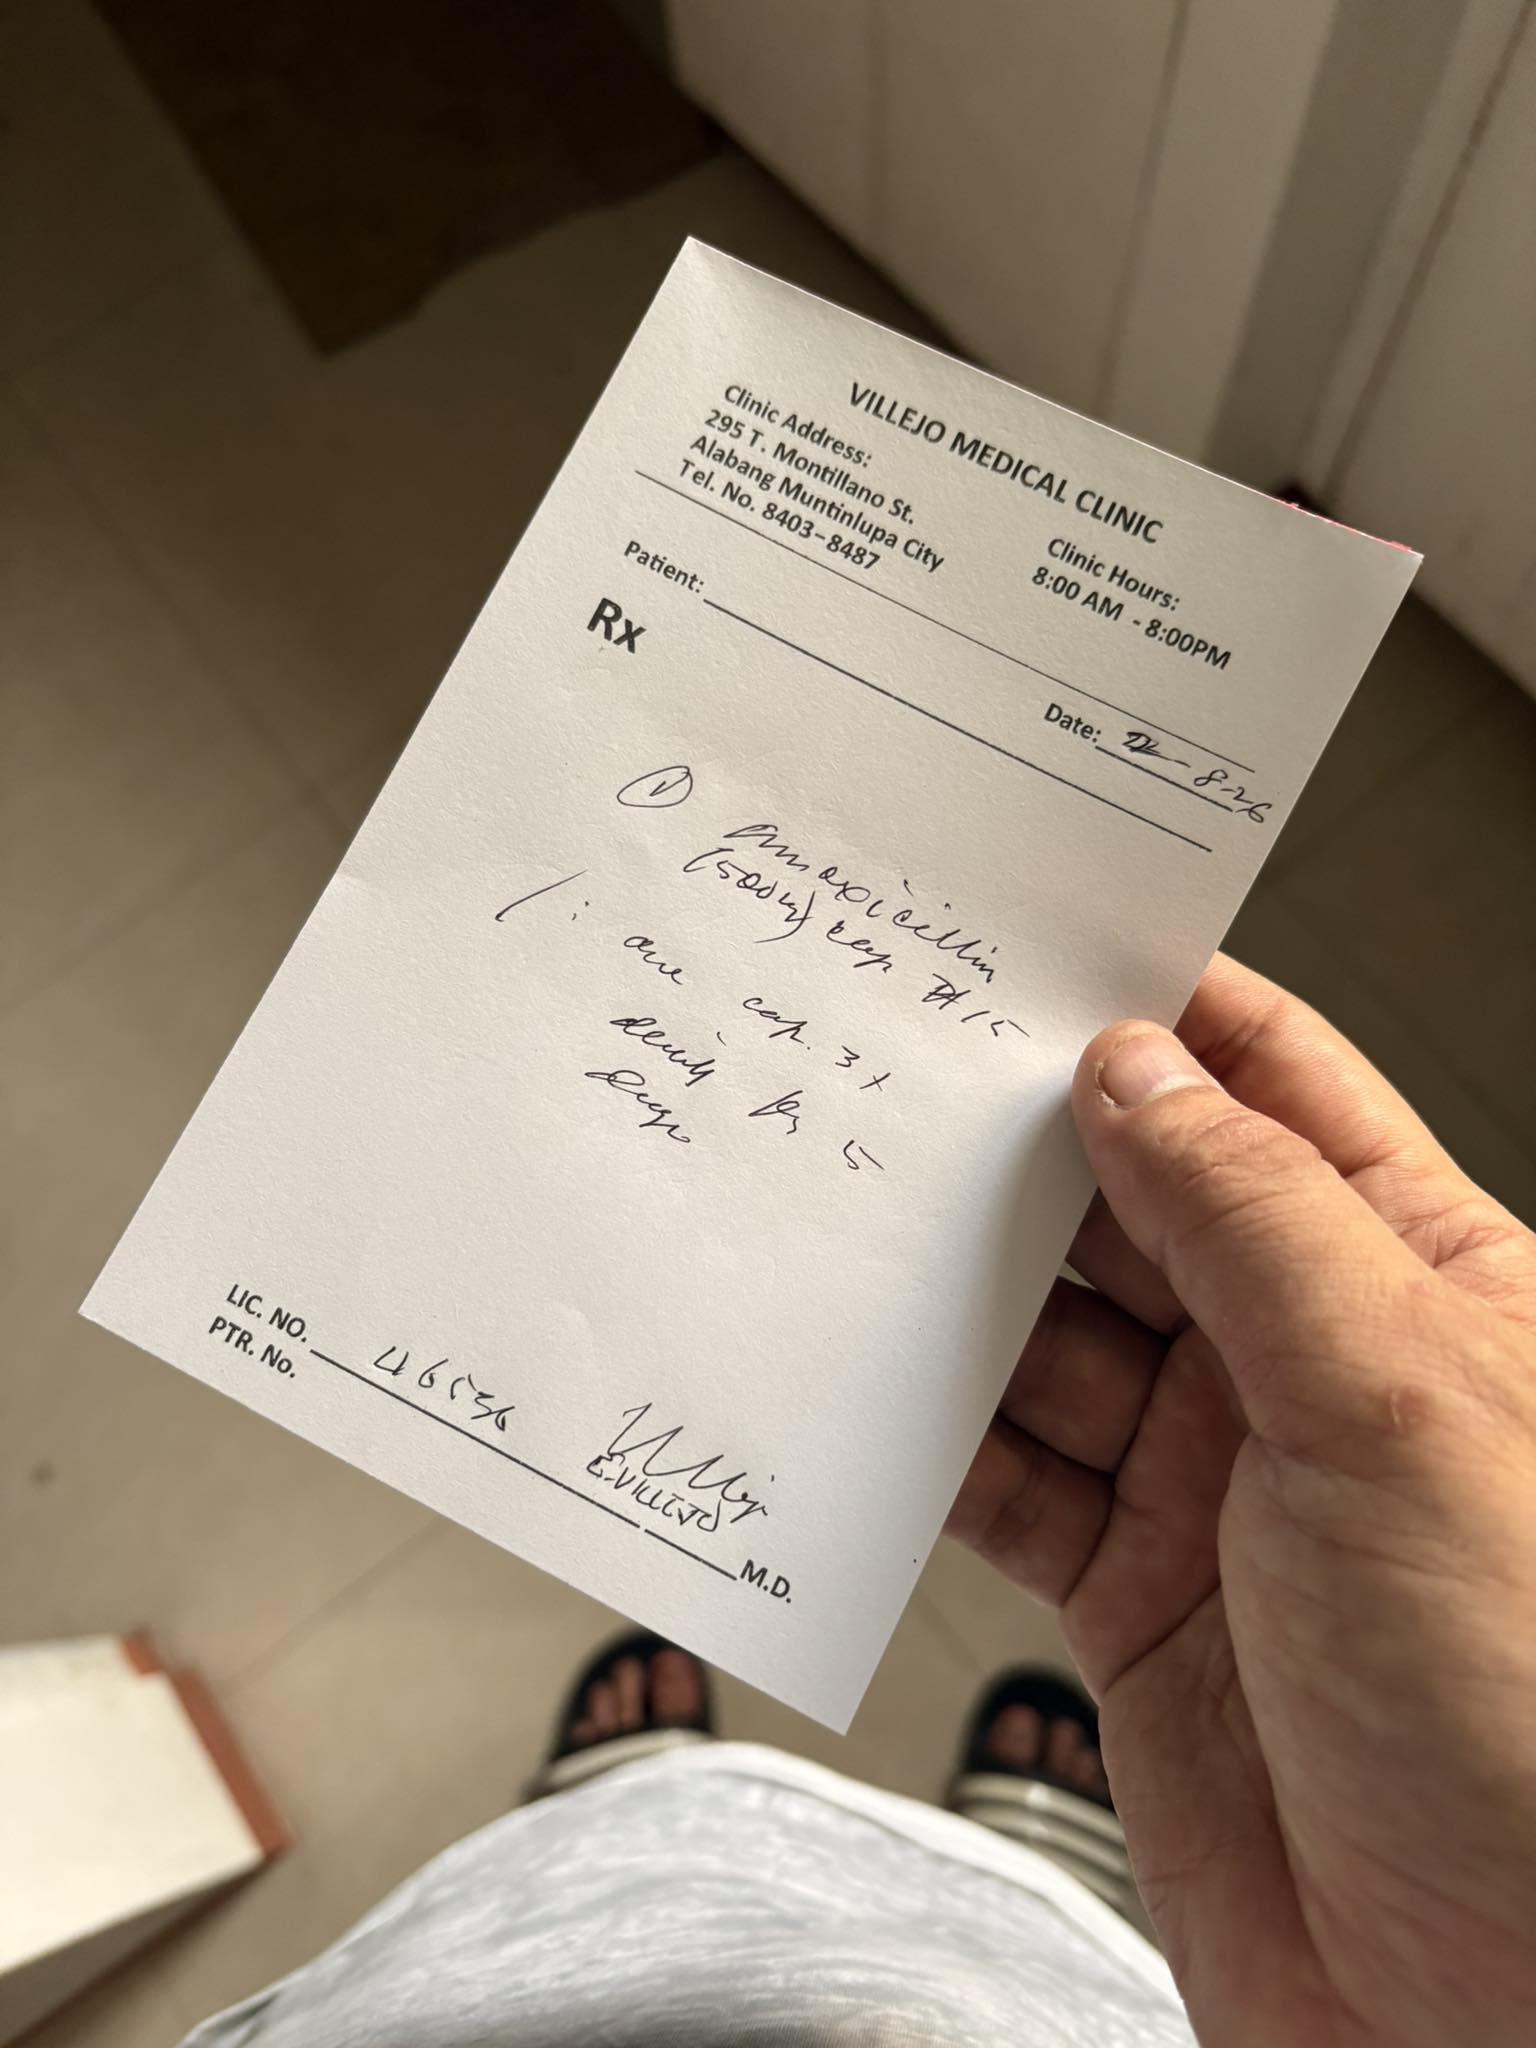 VILLEJO MEDICAL CLINIC
Clinic Address:
295 T. Montillano St.
Alabang Muntinlupa City
Tel. No. 8403-8487
Clinic Hours:
8:00 AM - 8:00PM
Patient:
Date: - 8-26
Rx
① Amoxicillin
(500mg) cap # 15
one cap. 3x
daily for 5
days
LIC. NO.
PTR. No.
E. VILLEJO
M.D.